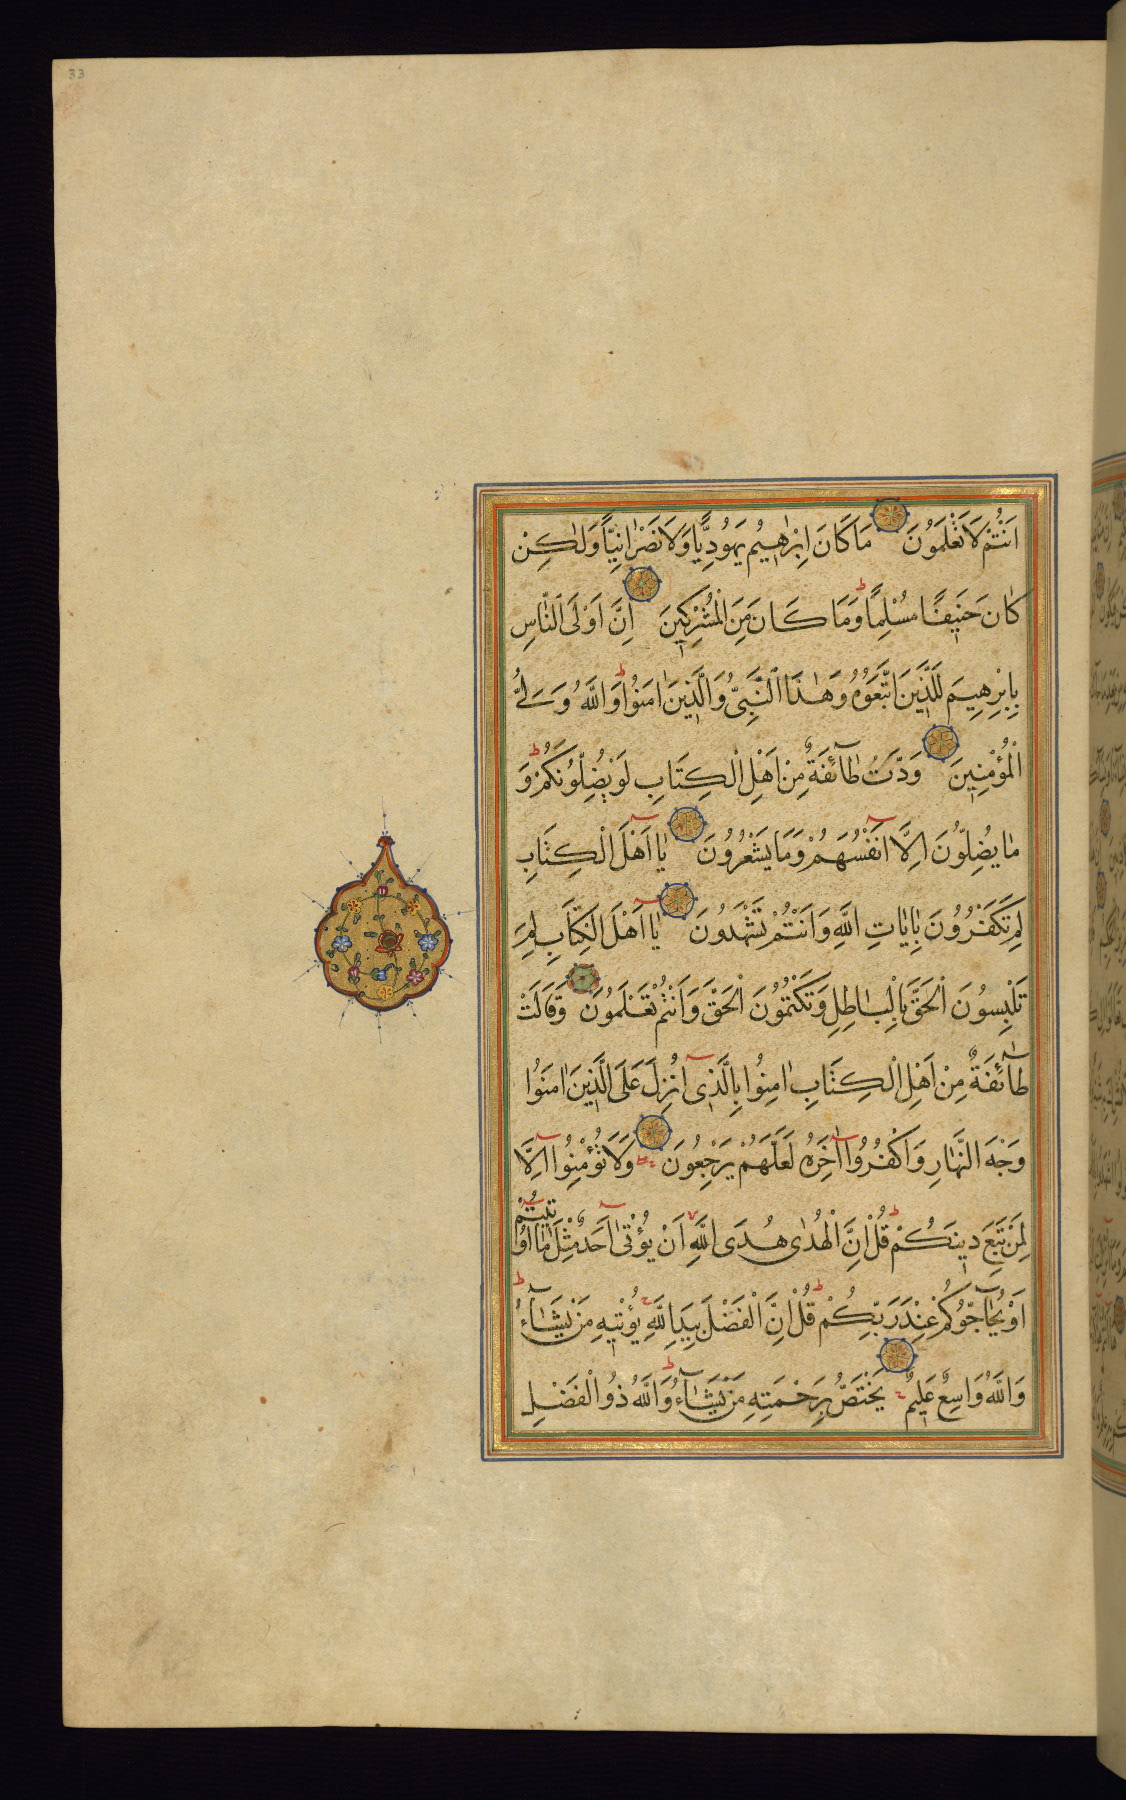 33
اَنْتُمْ لَا تَعْلَمُونَ مَا كَانَ اِبْرٰهِيمُ يَهُودِيًّا وَلَا نَصْرٰانِيًّا وَلٰكِنْ
كٰانَ حَنِيفًا مُسْلِمًا وَمَا كَانَ مِنَ الْمُشْرِكِينَ اِنَّ اَوْلَى النّٰاسِ
بِاِبْرٰهِيمَ لَلَّذِينَ اتَّبَعُوهُ وَهٰذَا النَّبِىُّ وَالَّذِينَ اٰمَنُوا وَاللّٰهُ وَلِىُّ
الْمُؤْمِنِينَ وَدَّتْ طٰآئِفَةٌ مِنْ اَهْلِ الْكِتَابِ لَوْ يُضِلُّونَكُمْ وَ
مٰا يُضِلُّونَ اِلَّا اَنْفُسَهُمْ وَمَا يَشْعُرُونَ يٰا اَهْلَ الْكِتَابِ
لِمَ تَكْفُرُونَ بِاٰيٰاتِ اللّٰهِ وَاَنْتُمْ تَشْهَدُونَ يٰا اَهْلَ الْكِتَابِ لِمَ
تَلْبِسُونَ الْحَقَّ بِالْبٰاطِلِ وَتَكْتُمُونَ الْحَقَّ وَاَنْتُمْ تَعْلَمُونَ وَقَالَتْ
طٰآئِفَةٌ مِنْ اَهْلِ الْكِتَابِ اٰمِنُوا بِالَّذِى اُنْزِلَ عَلَى الَّذِينَ اٰمَنُوا
وَجْهَ النَّهٰارِ وَاكْفُرُوا اٰخِرَهُ لَعَلَّهُمْ يَرْجِعُونَ وَلَا تُؤْمِنُوا اِلَّا
لِمَنْ تَبِعَ دِينَكُمْ قُلْ اِنَّ الْهُدٰى هُدَى اللّٰهِ اَنْ يُؤْتٰى اَحَدٌ مِثْلَ مٰا اُوتِيتُمْ
اَوْ يُحٰآجُّوكُمْ عِنْدَ رَبِّكُمْ قُلْ اِنَّ الْفَضْلَ بِيَدِ اللّٰهِ يُؤْتِيهِ مَنْ يَشٰآءُ
وَاللّٰهُ وَاسِعٌ عَلِيمٌ يَخْتَصُّ بِرَحْمَتِهِ مَنْ يَشٰآءُ وَاللّٰهُ ذُو الْفَضْلِ